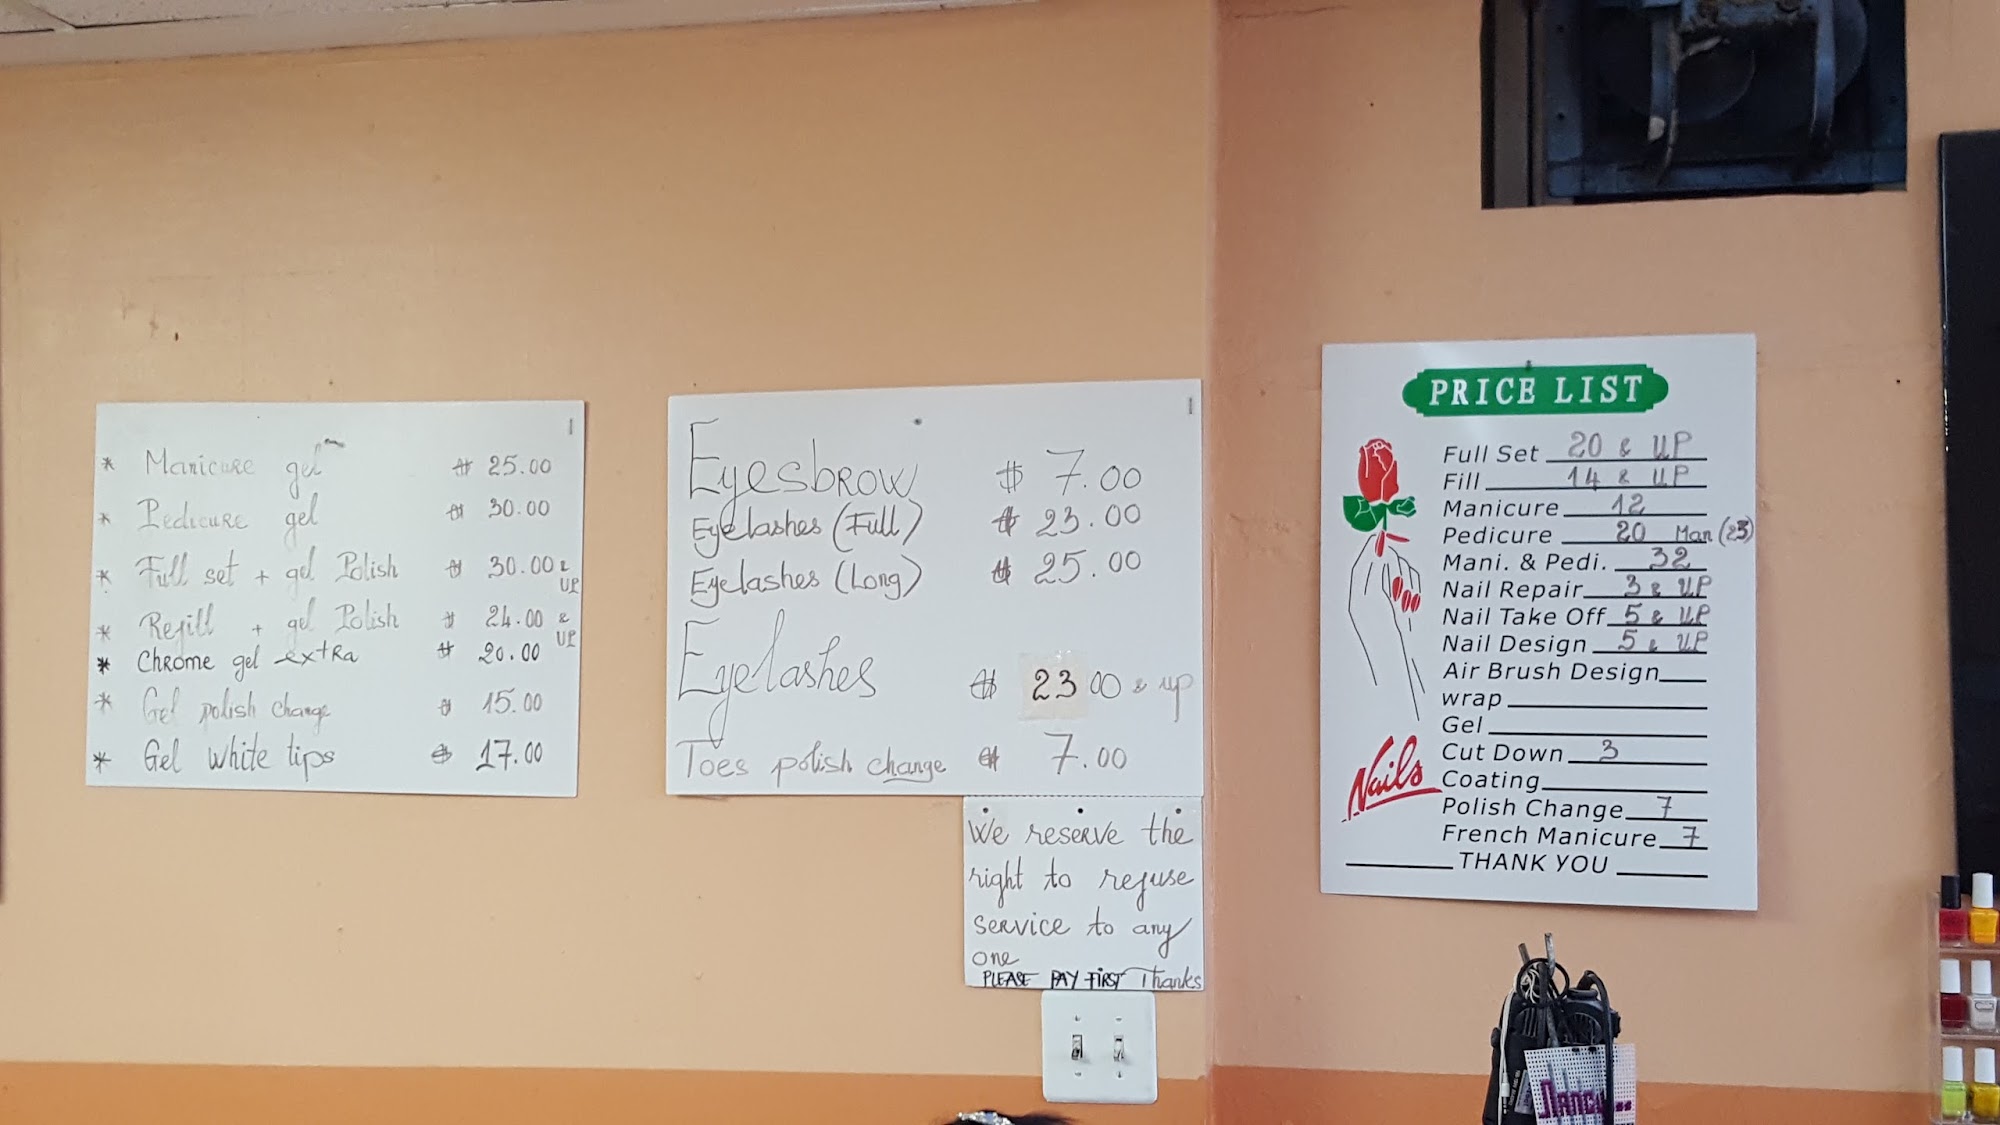 * Manicure gel $ 25.00
* Pedicure gel $ 30.00
* Full set + gel Polish $ 30.00 & UP
* Refill + gel Polish $ 24.00 & UP
* Chrome gel extra $ 20.00
* Gel polish change $ 15.00
* Gel white tips $ 17.00
Eyesbrow $ 7.00
Eyelashes (Full) $ 23.00
Eyelashes (Long) $ 25.00
Eyelashes $ 23.00 & up
Toes polish change $ 7.00
We reserve the
right to refuse
service to any
one
PLEASE PAY FIRST Thanks
PRICE LIST
Full Set 20 & UP
Fill 14 & UP
Manicure 12
Pedicure 20 Man (23)
Mani. & Pedi. 32
Nail Repair 3 & UP
Nail Take Off 5 & UP
Nail Design 5 & UP
Air Brush Design
wrap
Gel
Cut Down 3
Coating
Polish Change 7
French Manicure 7
THANK YOU
Nails